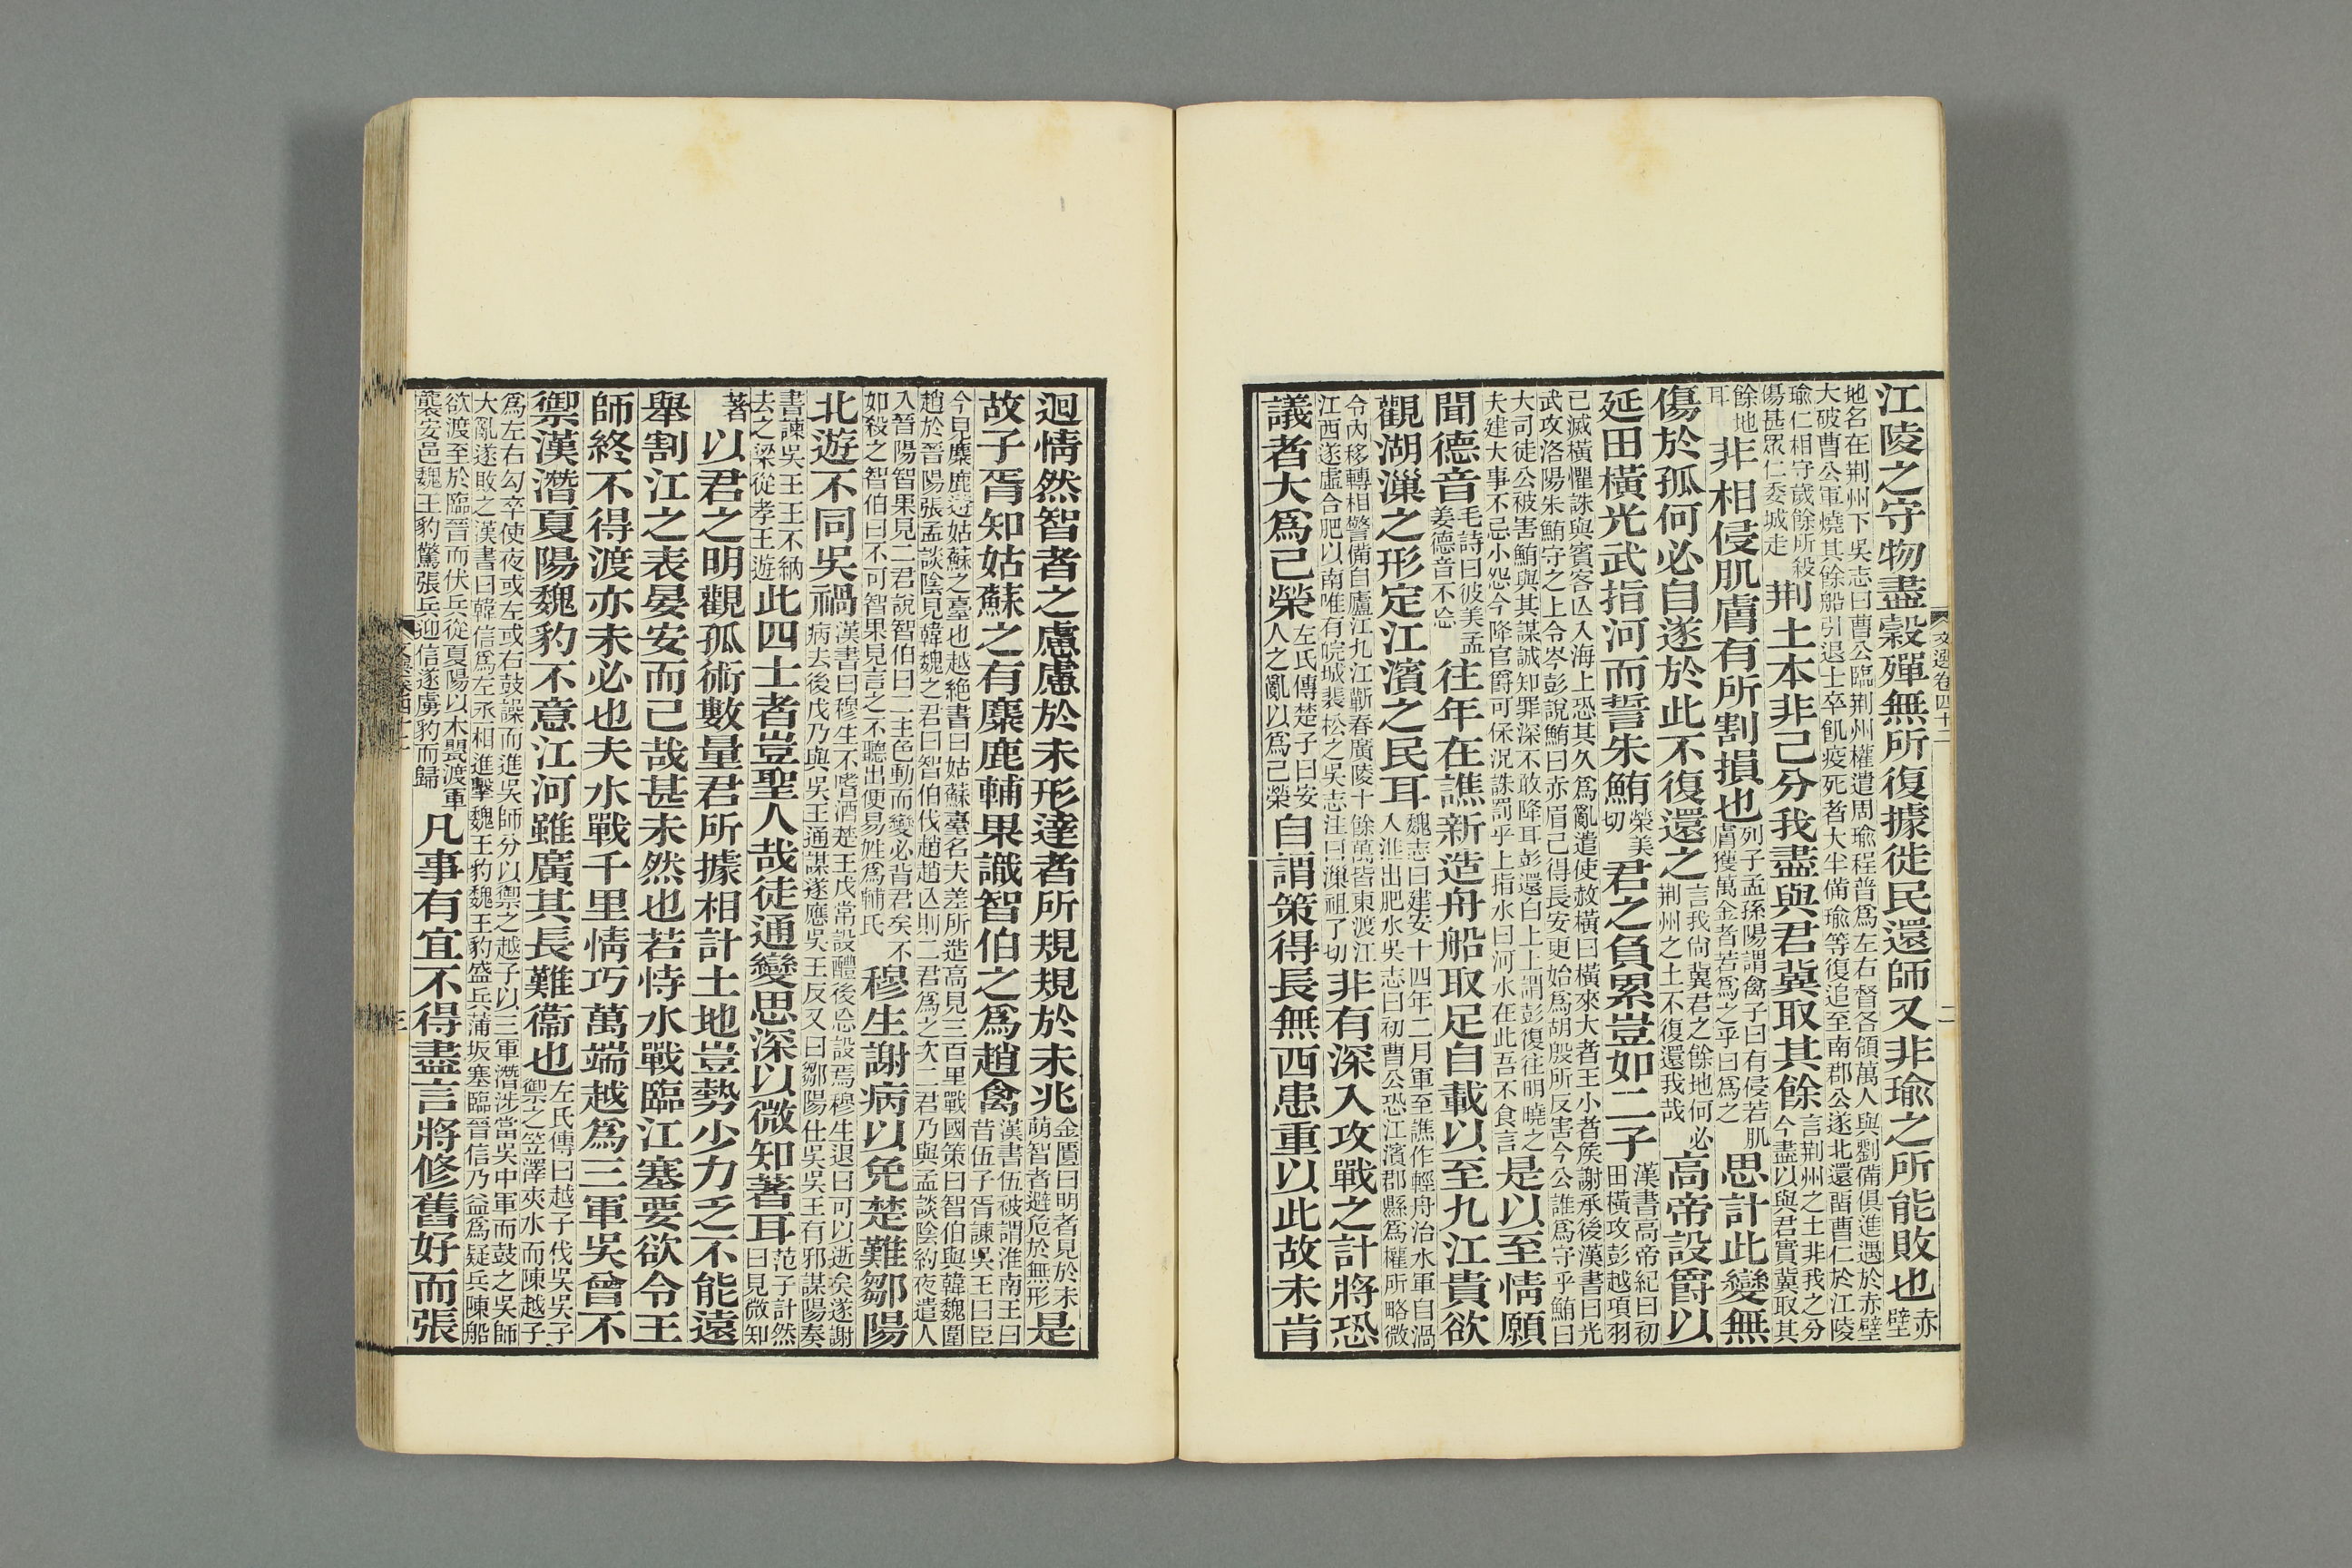 文選卷四十二
二
江陵之守物盡穀殫無所復據徙民還師又非瑜之所能敗也赤壁
地名在荆州下吳志曰曹公臨荆州權遣周瑜程普爲左右督各領萬人與劉備俱進遇於赤壁
大破曹公軍燒其餘船引退士卒飢疫死者大半備瑜等復追至南郡公遂北還留曹仁於江陵
瑜仁相守歲餘所殺傷甚眾仁委城走荆土本非己分我盡與君冀取其餘言荆州之土非我之分今盡以與君實冀取其
餘地耳非相侵肌膚有所割損也列子孟孫陽謂禽子曰有侵若肌膚獲萬金者若爲之乎曰爲之思計此變無
傷於孤何必自遂於此不復還之言我尙冀君之餘地何必荆州之土不復還我哉高帝設爵以
延田橫光武指河而誓朱鮪榮美切君之負累豈如二子漢書高帝紀曰初田橫攻彭越項羽
已滅橫懼誅與賓客亾入海上恐其久爲亂遣使赦橫曰橫來大者王小者矦謝承後漢書曰光
武攻洛陽朱鮪守之上令岑彭說鮪曰赤眉已得長安更始爲胡殷所反害今公誰爲守乎鮪曰
大司徒公被害鮪與其謀誠知罪深不敢降耳彭還白上上謂彭復往明曉之夫建大事不忌小怨今降官爵可保況誅罰乎上指水曰河水在此吾不食言是以至情願
聞德音毛詩曰彼美孟姜德音不忘往年在譙新造舟船取足自載以至九江貴欲
觀湖漅之形定江濱之民耳魏志曰建安十四年二月軍至譙作輕舟治水軍自渦入淮出肥水吳志曰初曹公恐江濱郡縣爲權所略微
令內移轉相警備自廬江九江蘄春廣陵十餘萬皆東渡江江西遂虛合肥以南唯有皖城裴松之吳志注曰漅祖了切非有深入攻戰之計將恐
議者大爲己榮左氏傳楚子曰安人之亂以爲己榮自謂策得長無西患重以此故未肯
迴情然智者之慮慮於未形達者所規規於未兆金匱曰明者見於未萌智者避危於無形是
故子胥知姑蘇之有麋鹿輔果識智伯之爲趙禽漢書伍被謂淮南王曰昔伍子胥諫吳王曰臣
今見麋鹿遊姑蘇之臺也越絶書曰姑蘇臺名夫差所造高見三百里戰國策曰智伯與韓魏圍
趙於晉陽張孟談陰見韓魏之君曰智伯伐趙趙亾則二君爲之次二君乃與孟談陰約夜遣人
入晉陽智果見二君說智伯曰二主色動而變必背君矣不如殺之智伯曰不可智果見言之不聽出便易姓爲輔氏穆生謝病以免楚難鄒陽
北遊不同吳禍漢書曰穆生不嗜酒楚王戊常設醴後忘設焉穆生退曰可以逝矣遂謝病去後戊乃與吳王通謀遂應吳王反又曰鄒陽仕吳吳王有邪謀陽奏
書諫吳王王不納去之梁從孝王遊此四士者豈聖人哉徒通變思深以微知著耳范子計然曰見微知
著以君之明觀孤術數量君所據相計土地豈勢少力乏不能遠
舉割江之表晏安而已哉甚未然也若恃水戰臨江塞要欲令王
師終不得渡亦未必也夫水戰千里情巧萬端越爲三軍吳曾不
禦漢潛夏陽魏豹不意江河雖廣其長難衞也左氏傳曰越子伐吳吳子禦之笠澤夾水而陳越子
爲左右勾卒使夜或左或右鼓譟而進吳師分以禦之越子以三軍潛涉當吳中軍而鼓之吳師
大亂遂敗之漢書曰韓信爲左丞相進擊魏王豹魏王豹盛兵蒲坂塞臨晉信乃益爲疑兵陳船
欲渡至於臨晉而伏兵從夏陽以木罌渡軍襲安邑魏王豹驚張兵迎信遂虜豹而歸凡事有宜不得盡言將修舊好而張
文選卷四十二
三